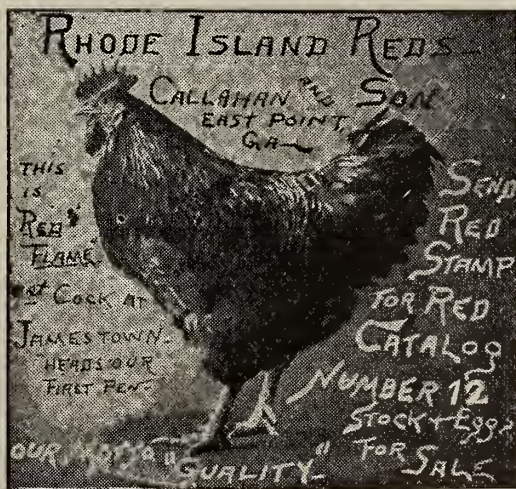 RHODE ISLAND REDS
CALLAHAN AND SON
EAST POINT,
GA
THIS
IS
"RED
FLAME"
1st COCK AT
JAMESTOWN
HEADS OUR
FIRST PEN
SEND
RED
STAMP
FOR RED
CATALOG
NUMBER 12
STOCK + EGGS
FOR
SALE
OUR MOTTO "QUALITY"